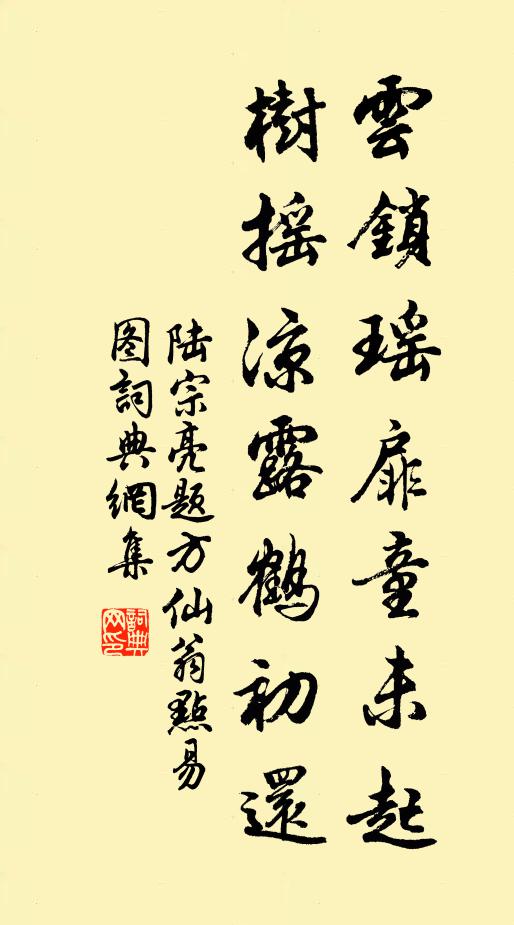 雲鎖瑤扉童未起
樹摇凉露鶴初還
陸宗亮题方仙翁點易
图詞典網集
詞典
网印